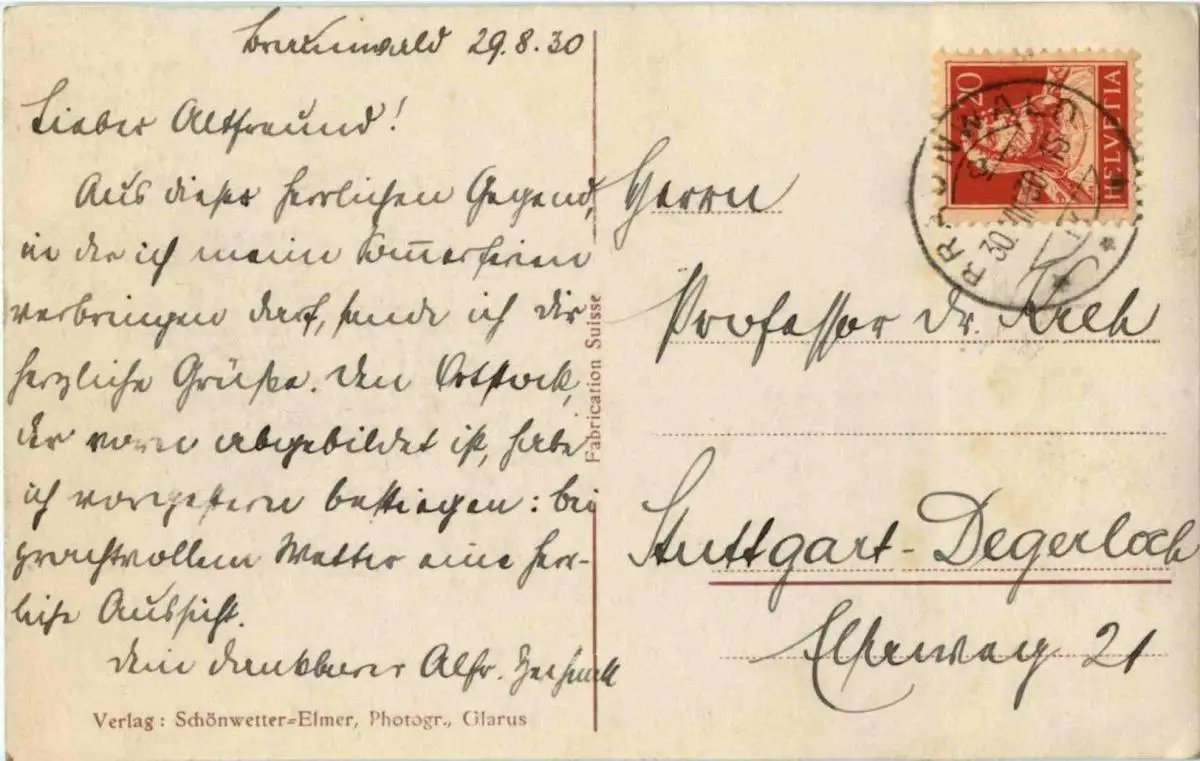 Braunwald 29.8.30
Lieber Altfreund!
Aus dieser herrlichen Gegend,
in der ich meine Som̅erferien
verbringen darf, sende ich dir
herzliche Grüße. Den Ortstock,
der vorn abgebildet ist, habe
ich vorgestern bestiegen: bei
prachtvollem Wetter eine herr-
liche Aussicht.
Dein dankbarer Alfr.
Verlag: Schönwetter=Elmer, Photogr., Glarus
Fabrication Suisse
20
HELVETIA
BRAUNWALD
30.VIII.30
Herrn
Professor Dr.
Stuttgart-Degerloch
21